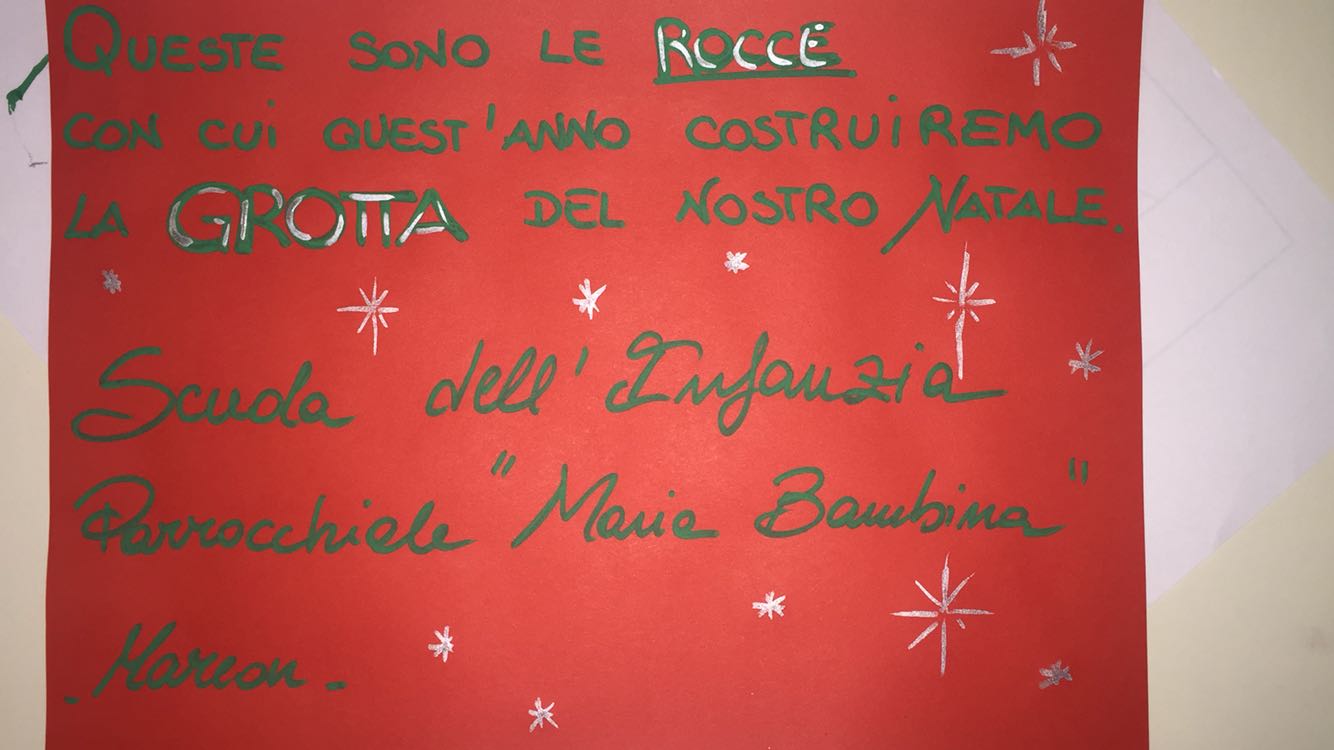 QUESTE SONO LE ROCCE
CON CUI QUEST'ANNO COSTRUIREMO
LA GROTTA DEL NOSTRO NATALE.
Scuola dell'Infanzia
Parrocchiale "Maria Bambina"
- Marcon -